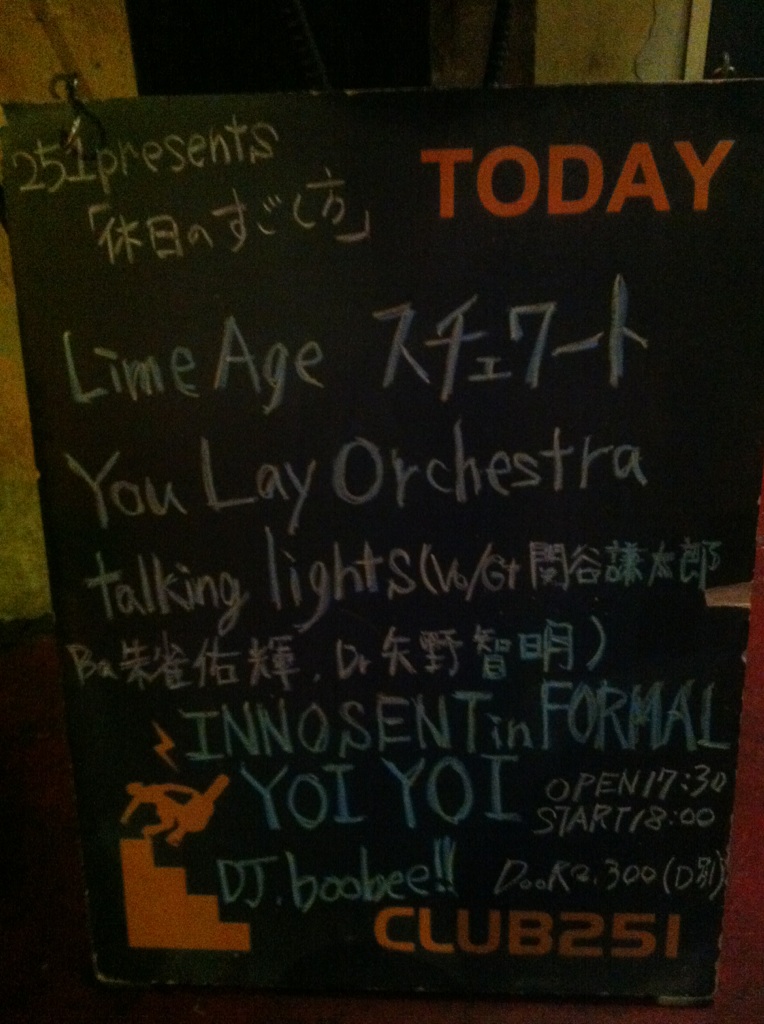 251 presents
TODAY
「休日のすごし方」
Lime Age スチュワート
You Lay Orchestra
talking lights (Vo/Gt 関谷謙太郎
Ba 朱雀佑輝. Dr 矢野智明)
INNOSENT in FORMAL
YOI YOI
OPEN 17:30
START 18:00
DJ. boobee!!
DOOR 2.300 (D別)
CLUB251